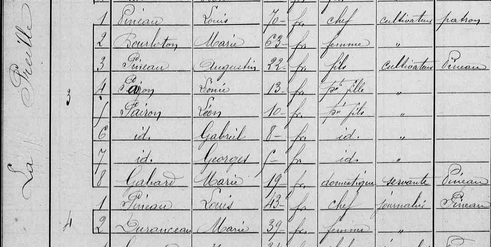 La Freille
3
1 Pineau Louis 70 fr. chef cultivateur patron
2 Bourloton Marie 63 fr. femme "
3 Pineau Augustin 22 fr. fils cultivateur Pineau
4 Pairon 13 fr. pt fille "
5 Pairon Léon 10 fr. pt fils "
6 id. Gabriel 8 fr. id. "
7 id. Georges fr. id. "
8 Gabard Marie 19 fr. domestique servante Pineau
4
1 Pineau Louis 43 fr. chef journalier Pineau
2 Duranceau Marie 39 fr. femme "